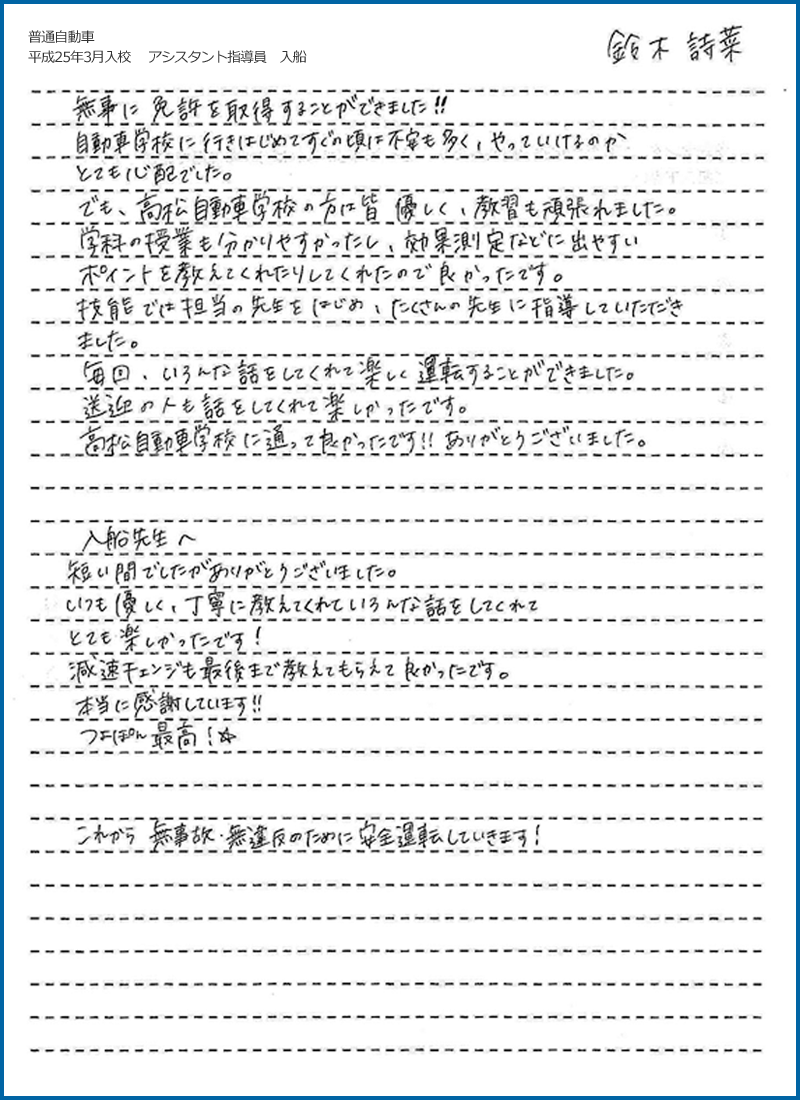 普通自動車
平成25年3月入校　アシスタント指導員　入船
鈴木 詩菜
無事に免許を取得することができました!!
自動車学校に行きはじめてすぐの頃は不安も多く、やっていけるのか
とても心配でした。
でも、高松自動車学校の方は皆優しく、教習も頑張れました。
学科の授業も分かりやすかったし、効果測定などに出やすい
ポイントを教えてくれたりしてくれたので良かったです。
技能では担当の先生をはじめ、たくさんの先生に指導していただき
ました。
毎回、いろんな話をしてくれて楽しく運転することができました。
送迎の人も話をしてくれて楽しかったです。
高松自動車学校に通って良かったです!!ありがとうございました。
入船先生へ
短い間でしたがありがとうございました。
いつも優しく、丁寧に教えてくれていろんな話をしてくれて
とても楽しかったです!
減速チェンジも最後まで教えてもらえて良かったです。
本当に感謝しています!!
つよぽん最高!☆
これから無事故・無違反のために安全運転していきます!